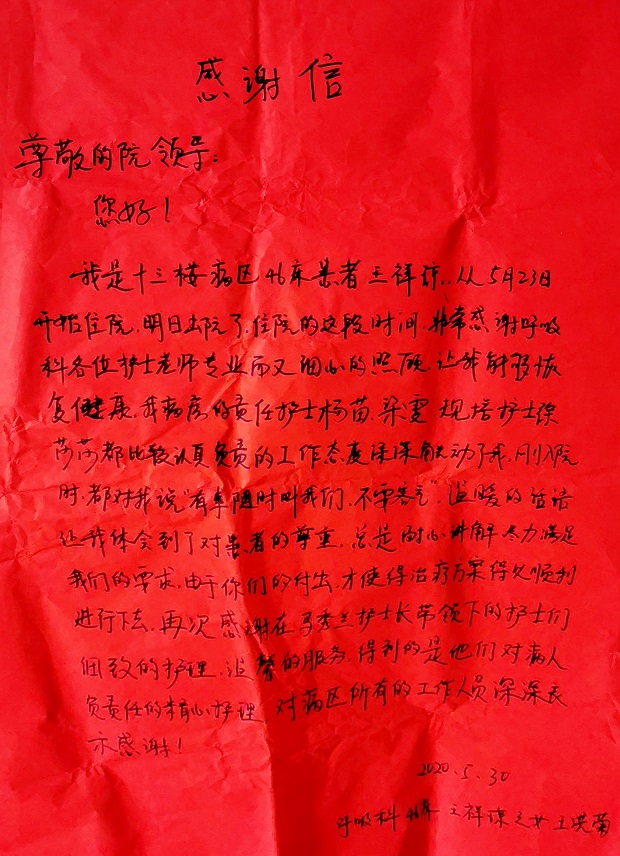 感谢信
尊敬的院领导:
您好!
我是十三楼病区46床患者王祥琼.从5月23日
开始住院.明日出院了.住院的这段时间.非常感谢呼吸
科各位护士老师专业而又细心的照顾.让我能够恢
复健康.我病房的责任护士杨苗.梁雯.规培护士徐
莎莎都比较认真负责的工作态度深深触动了我.刚入院
时.都对我说“有事随时叫我们.不要客气”.温暖的话语
让我体会到了对患者的尊重.总是耐心讲解尽力满足
我们的要求.由于你们的付出.才使得治疗方案得以顺利
进行下去.再次感谢在马秀兰护士长带领下的护士们
细致的护理.温馨的服务.得到的是他们对病人
负责任的精心护理 对病区所有的工作人员深深表
示感谢!
2020.5.30
呼吸科 46床 王祥琼之女 王洪菊